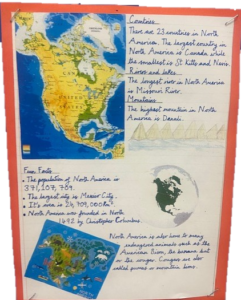 Countries
There are 23 countries in North
America. The largest country in
North America is Canada while
the smallest is St Kitts and Nevis.
Rivers and lakes
The longest river in North America
is Missouri River.
Mountains
The highest mountain in North
America is Denali.
Fun Facts
The population of North America is
The largest city is Mexico City.
It's area is 24,709,000km²
North America was founded in North
1492 by Christopher Columbus.
North America is also home to many
endangered animals such as the
American Bison, the
or the cougar. Cougars are also
called pumas or mountain lions.